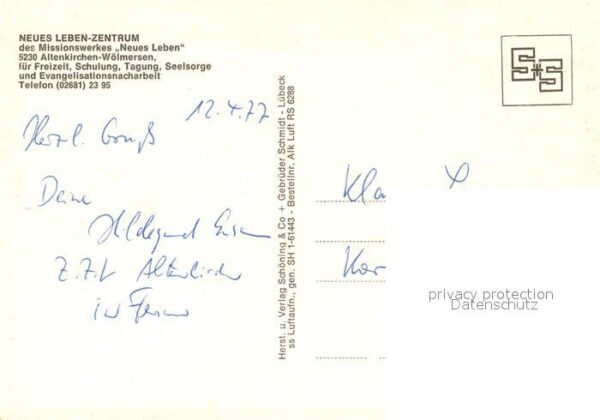 NEUES LEBEN-ZENTRUM
des Missionswerkes „Neues Leben"
5230 Altenkirchen-Wölmersen,
für Freizeit, Schulung, Tagung, Seelsorge
und Evangelisationsnacharbeit
Telefon (02681) 23 95
S+S
12.4.77
Herzl. Gruß
Deine
Hildegund
z.Zt. Altenkirchen
Herst. u. Verlag Schöning & Co + Gebrüder Schmidt - Lübeck
ss Luftaufn., gen. SH 1-61443 - Bestellnr. Alk Luft RS 6288
Kla
privacy protection
Datenschutz